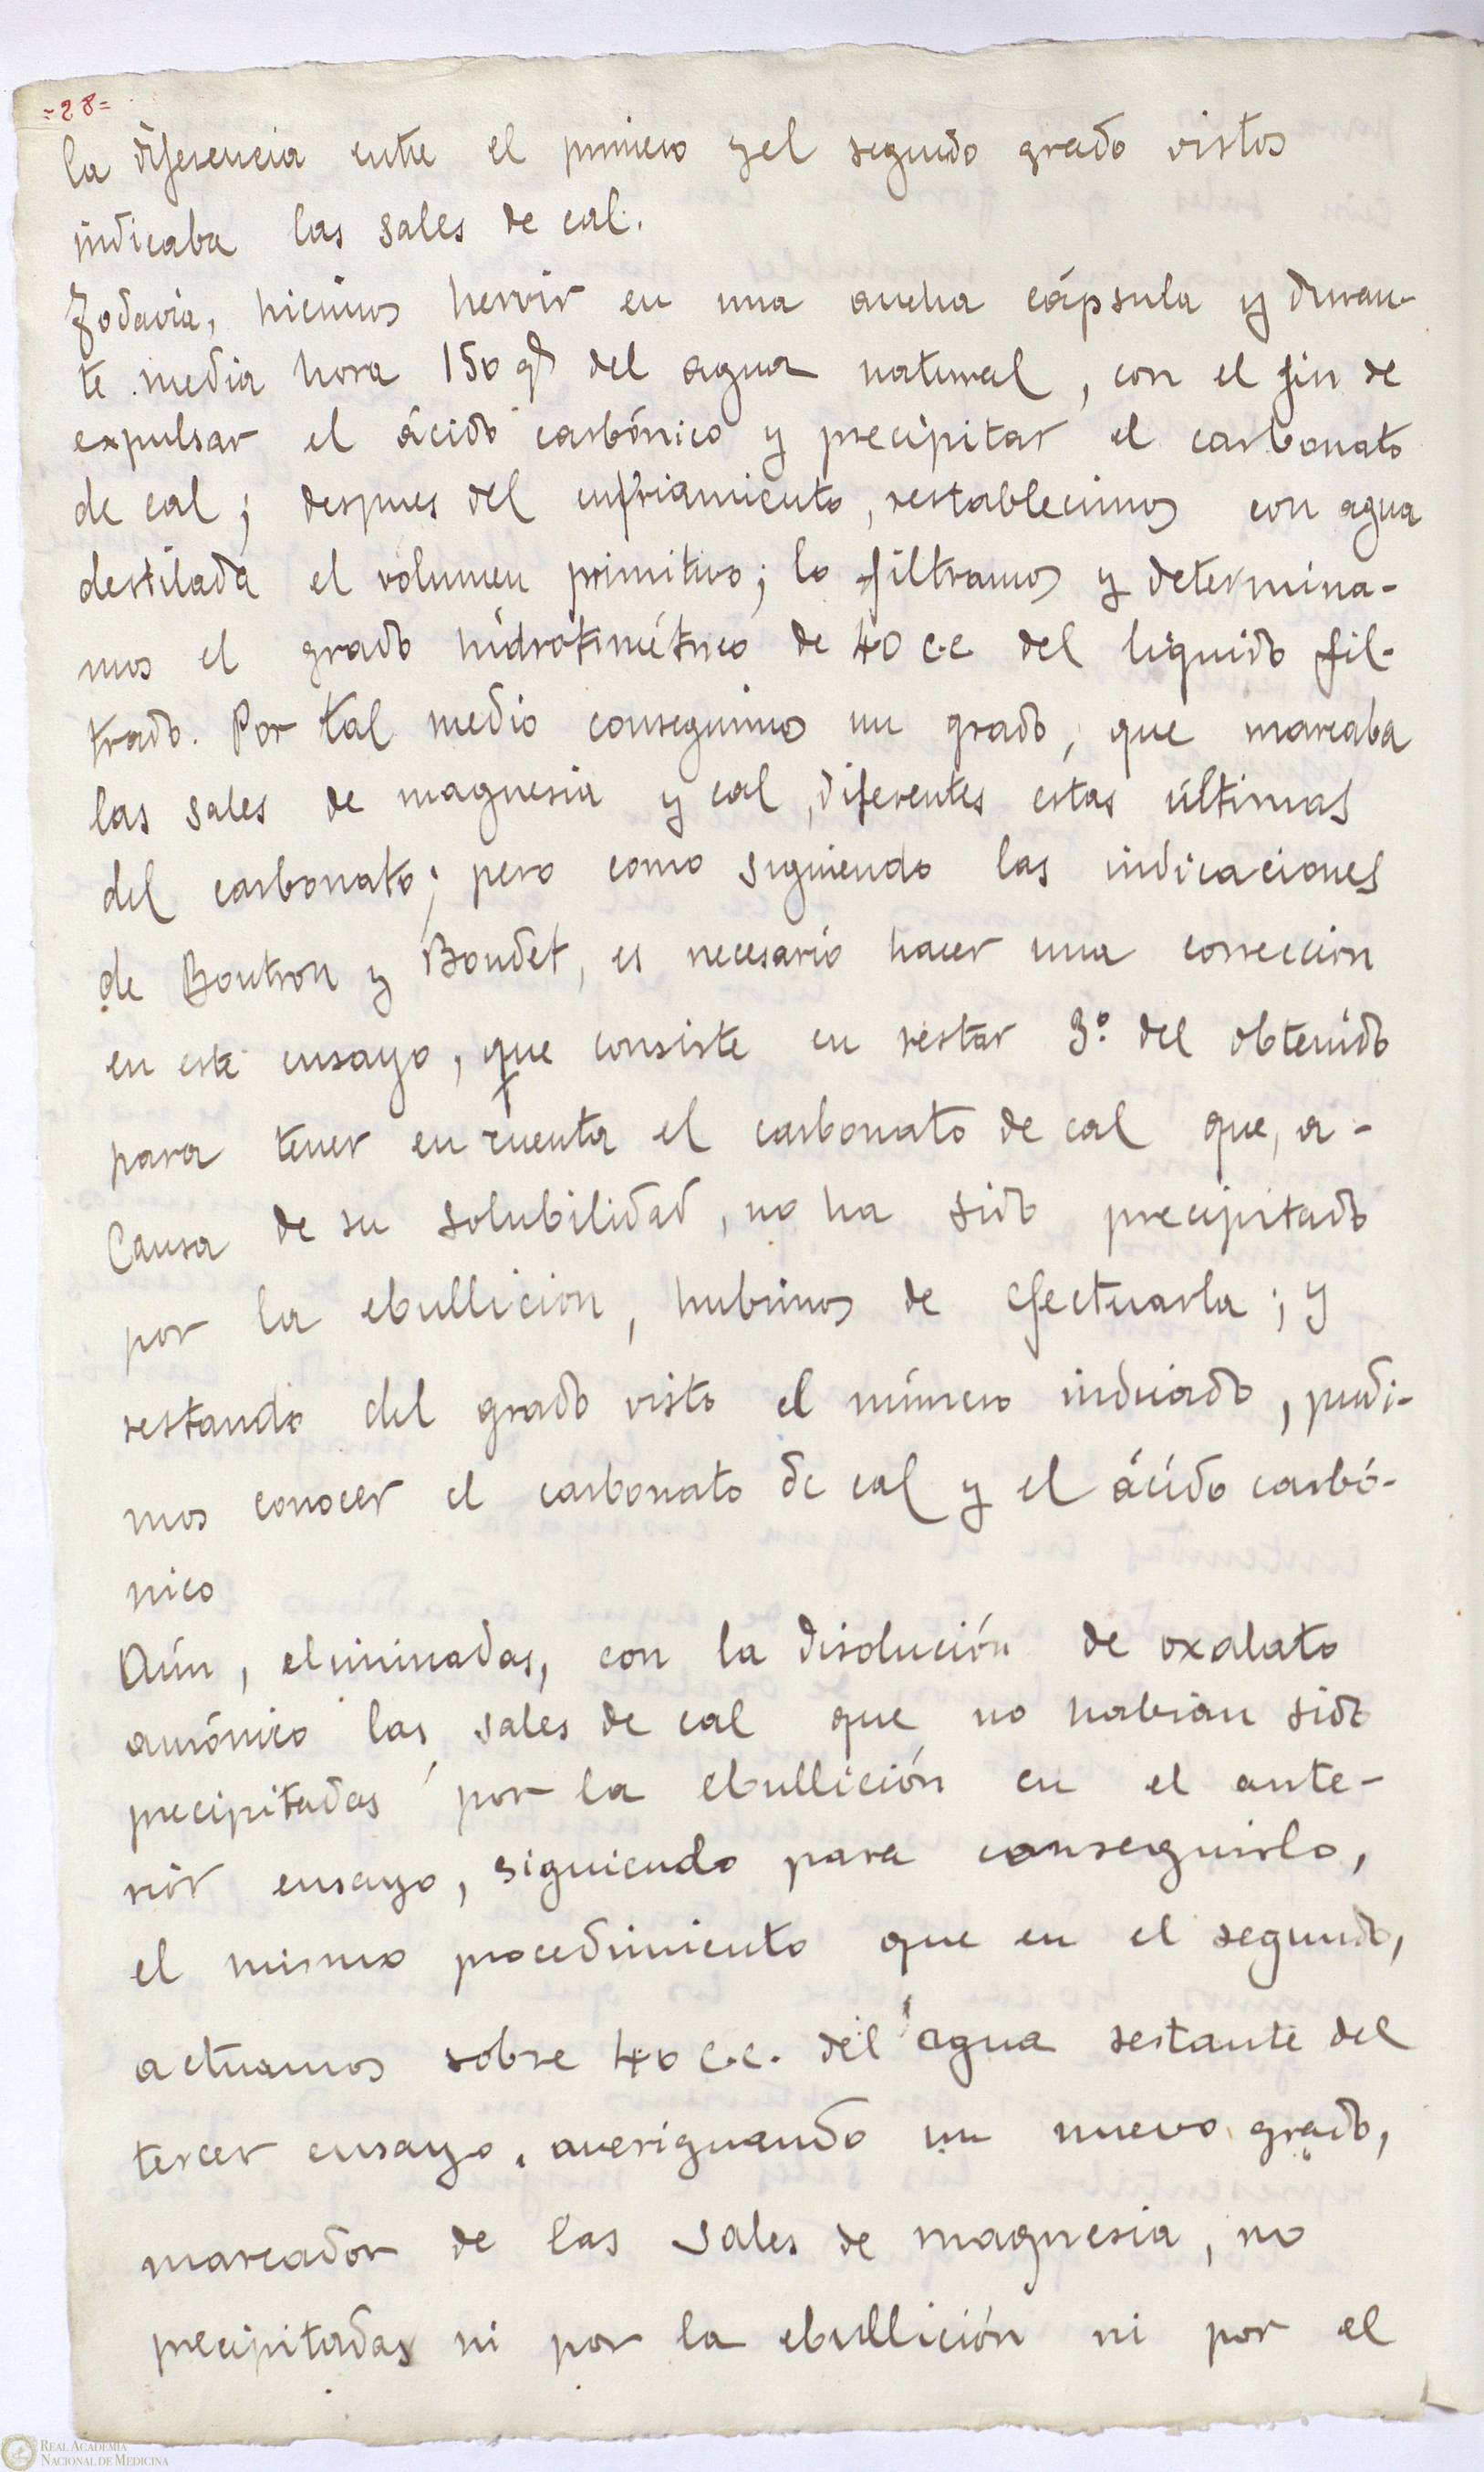 =28=
la diferencia entre el primero y el segundo grado vistos
indicaba las sales de cal.
Todavia, hicimos hervir en una ancha cápsula y duran-
te media hora 150 gs del agua natural, con el fin de
expulsar el ácido carbónico y precipitar el carbonato
de cal; despues del enfriamiento, restablecimos con agua
destilada el volumen primitivo; lo filtramos y determina-
mos el grado hidrotimétrico de 40 c.c del liquido fil-
trado. Por tal medio conseguimos un grado, que marcaba
las sales de magnesia y cal, diferentes estas últimas
del carbonato; pero como siguiendo las indicaciones
de Boutron y Boudet, es necesario hacer una correccion
en este ensayo, que consiste en restar 3º. del obtenido
para tener en cuenta el carbonato de cal que, a-
Causa de su solubilidad, no ha sido precipitado
por la ebullicion, hubimos de efectuarla; y
restando del grado visto el número indicado, pudi-
mos conocer el carbonato de cal y el ácido carbó-
nico
Aún, eliminadas, con la disolución de oxalato
amónico las sales de cal que no habian sido
precipitadas por la ebullición en el ante-
rior ensayo, siguiendo para conseguirlo,
el mismo procedimiento que en el segundo,
actuamos sobre 40 c.c. del agua restante del
tercer ensayo, averiguando un nuevo grado,
marcador de las sales de magnesia, no
precipitadas ni por la ebullición ni por el
REAL ACADEMIA
NACIONAL DE MEDICINA